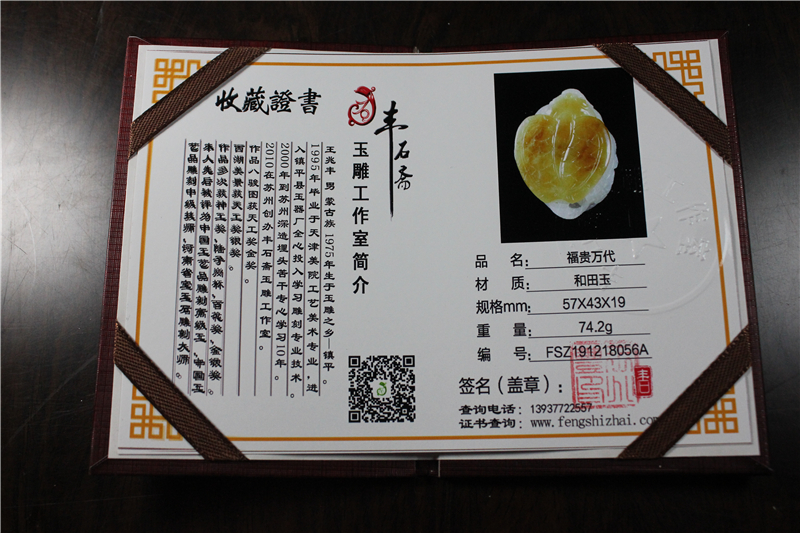 收藏證書
丰石斋
玉雕工作室简介
王兆丰 男 蒙古族 1975年生于玉雕之乡—镇平。
1995年毕业于天津美院工艺美术专业，进
入镇平县玉器厂全心投入学习雕刻专业技术。
2000年到苏州深造埋头苦干专心学习10年。
2010在苏州创办丰石斋玉雕工作室。
作品 八骏图获天工奖金奖。
西湖美景获天工奖银奖。
作品多次获神工奖，陆子岗杯，百花奖，金银奖
本人先后被评为中国玉石雕刻高级工 中国工
艺品雕刻中级技师，河南省宝玉石雕刻大师。
品 名： 福贵万代
材 质： 和田玉
规格mm： 57X43X19
重 量： 74.2g
编 号： FSZ191218056A
签名（盖章）：
查询电话： 13937722557
证书查询： www.fengshizhai.com